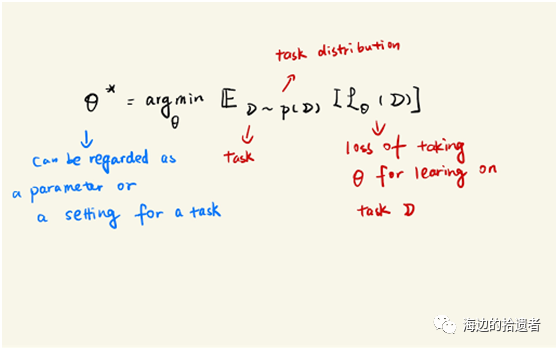 task distribution
θ* = arg min_θ 𝔼_{D ~ p(D)} [ℒ_θ (D)]
can be regarded as
a parameter or
a setting for a task
task
loss of taking
θ for learing on
task D
海边的拾遗者